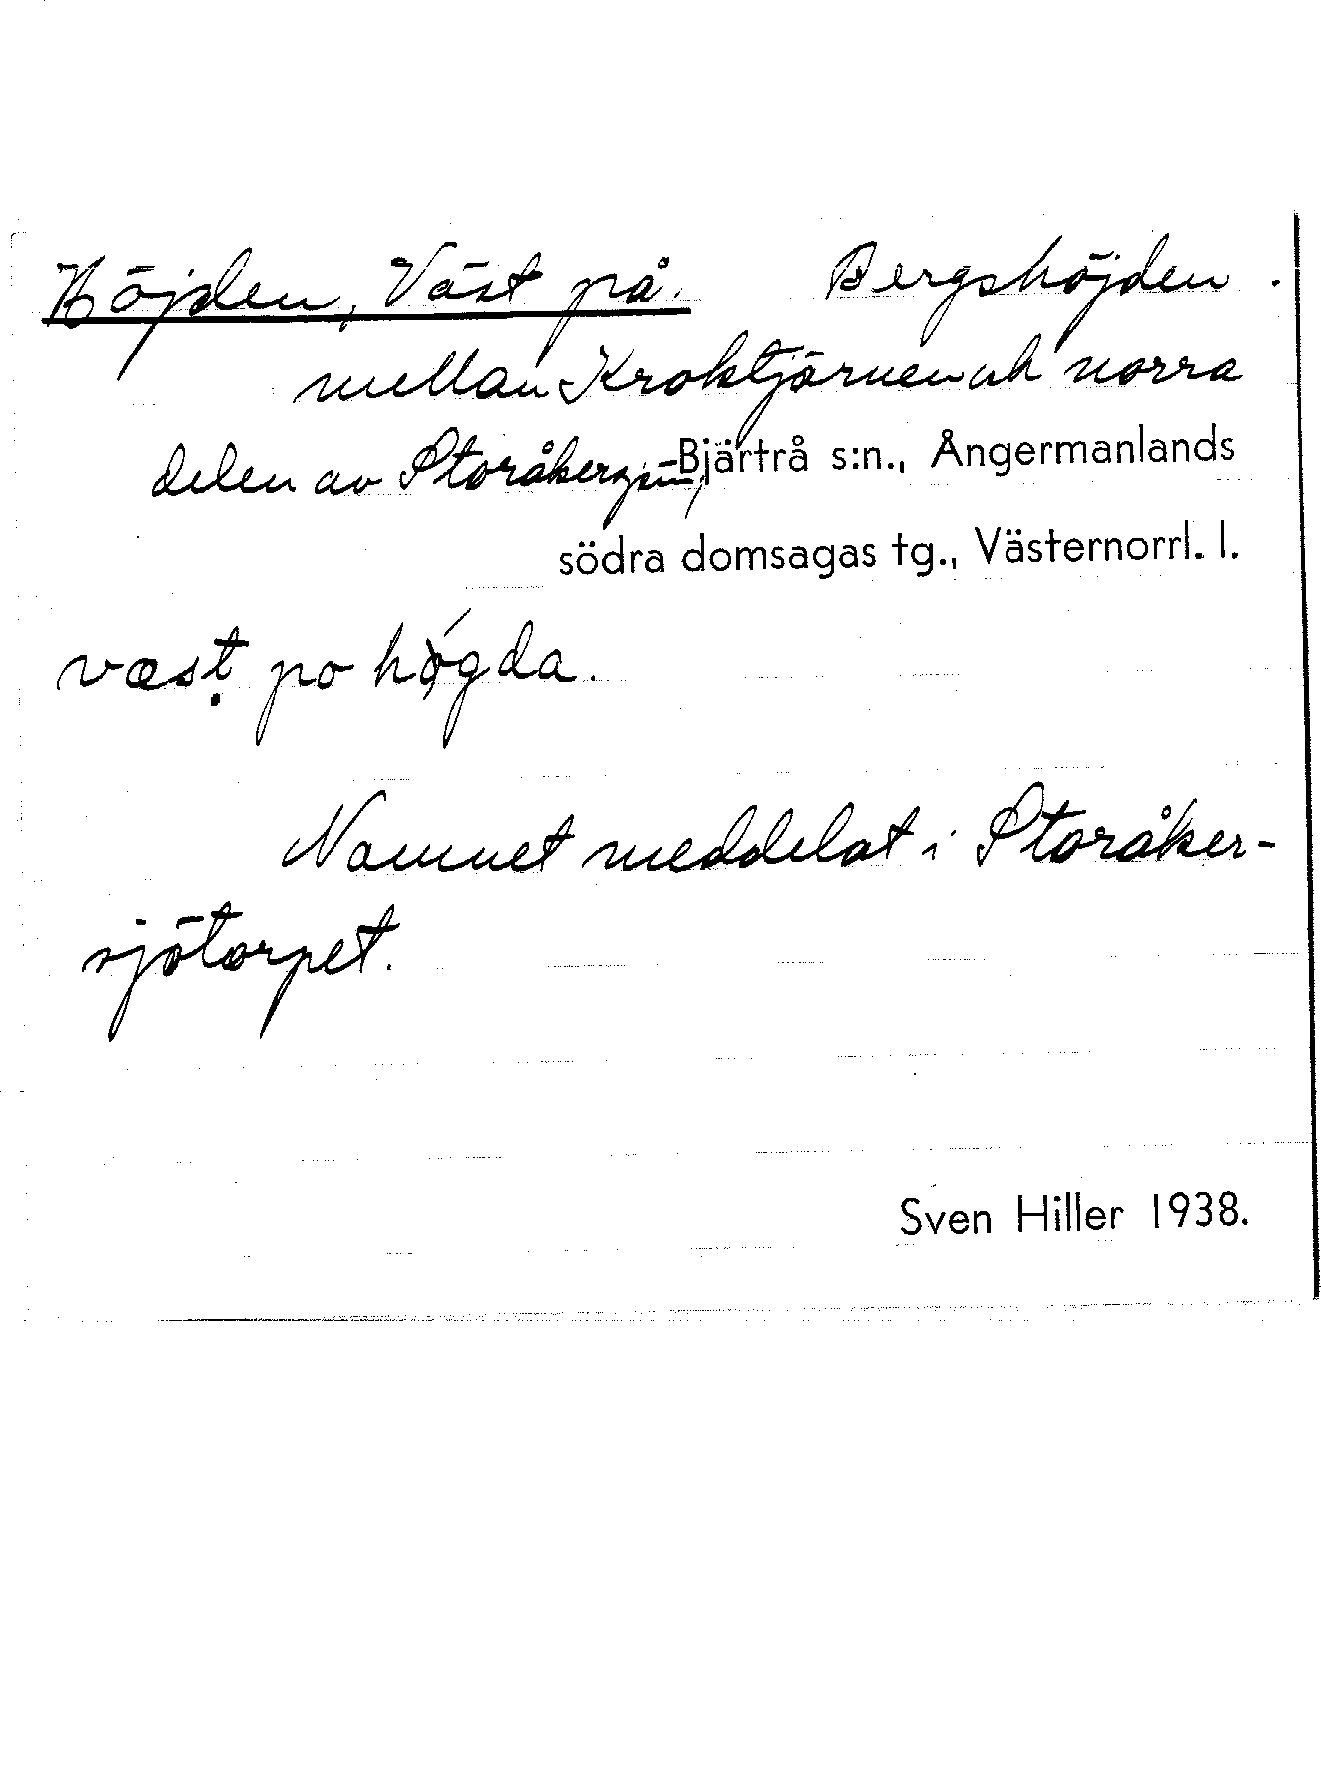 Höjden, Väst på. Bergshöjden
mellan Kroktjärnen och norra
delen av Storåkersjön, Bjärtrå s:n., Ångermanlands
södra domsagas tg., Västernorrl. l.
væsṭ po hǿgda.
Namnet meddelat i Storåker-
sjötorpet.
Sven Hiller 1938.